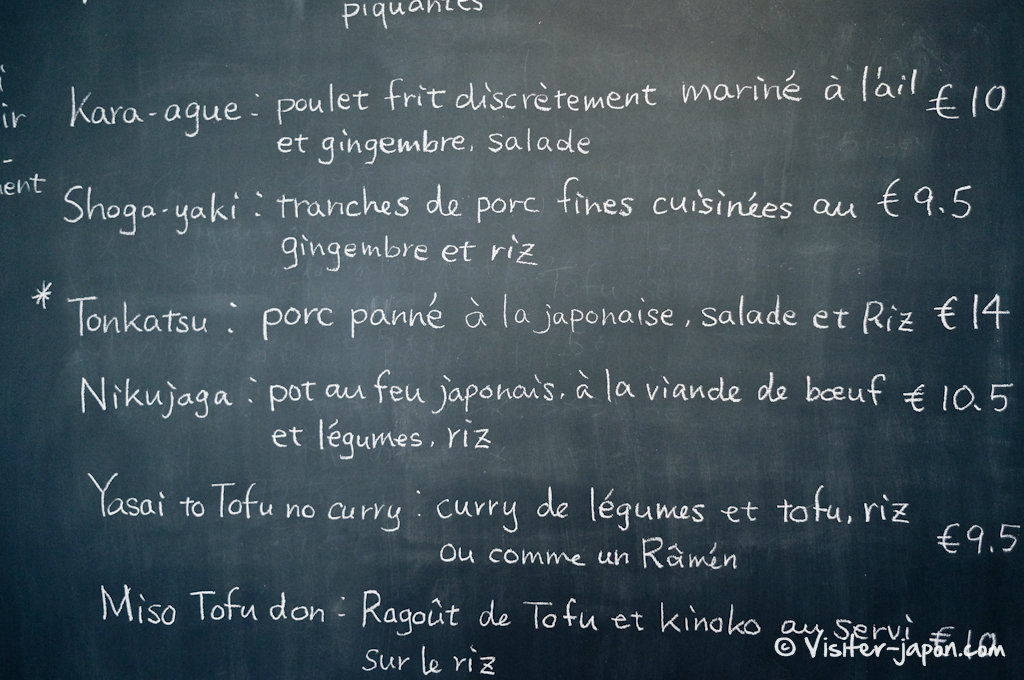 piquantes
ir
ent
Kara-ague : poulet frit discrètement mariné à l'ail €10
et gingembre, salade
Shoga-yaki : tranches de porc fines cuisinées au €9.5
gingembre et riz
* Tonkatsu : porc panné à la japonaise, salade et Riz €14
Nikujaga : pot au feu japonais, à la viande de bœuf €10.5
et légumes, riz
Yasai to Tofu no curry : curry de légumes et tofu, riz
ou comme un Râmén €9.5
Miso Tofu don : Ragoût de Tofu et kinoko au servi €10
sur le riz
© Visiter-japon.com